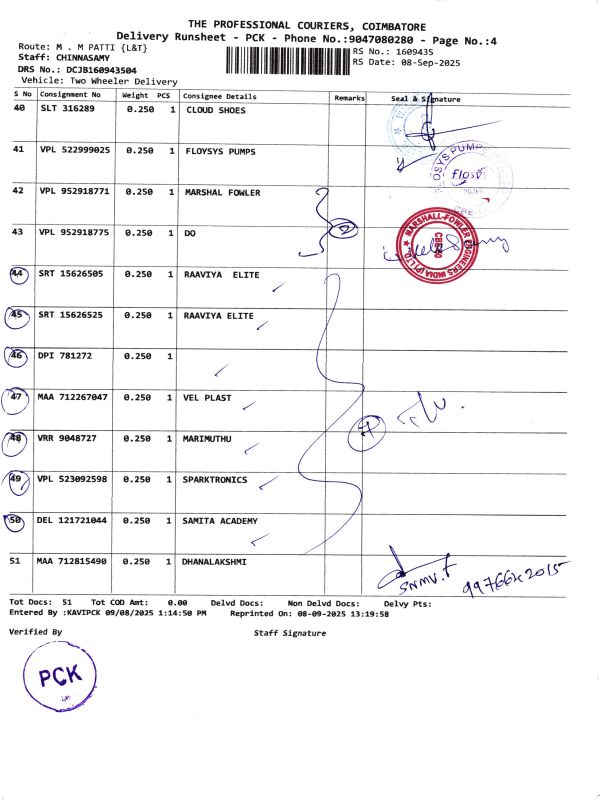 THE PROFESSIONAL COURIERS, COIMBATORE
Delivery Runsheet - PCK - Phone No.:9047080280 - Page No.:4
Route: M . M PATTI {L&T}
RS No.: 1609435
Staff: CHINNASAMY
RS Date: 08-Sep-2025
DRS No.: DCJB160943504
Vehicle: Two Wheeler Delivery
S No Consignment No Weight PCS Consignee Details Remarks Seal & Signature
40 SLT 316289 0.250 1 CLOUD SHOES
41 VPL 522999025 0.250 1 FLOYSYS PUMPS
42 VPL 952918771 0.250 1 MARSHAL FOWLER
43 VPL 952918775 0.250 1 DO
2
MARSHALL-FOWLER ENGINEERS INDIA (P) LTD.
44 SRT 15626505 0.250 1 RAAVIYA ELITE
45 SRT 15626525 0.250 1 RAAVIYA ELITE
46 DPI 781272 0.250 1
47 MAA 712267047 0.250 1 VEL PLAST
48 VRR 9048727 0.250 1 MARIMUTHU
7
49 VPL 523092598 0.250 1 SPARKTRONICS
50 DEL 121721044 0.250 1 SAMITA ACADEMY
51 MAA 712815490 0.250 1 DHANALAKSHMI
Tot Docs: 51 Tot COD Amt: 0.00 Delvd Docs: Non Delvd Docs: Delvy Pts:
Entered By :KAVIPCK 09/08/2025 1:14:50 PM Reprinted On: 08-09-2025 13:19:58
Verified By Staff Signature
PCK